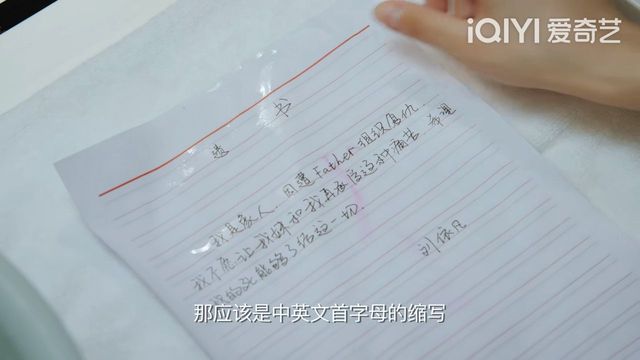 iQIYI 爱奇艺
遗 书
我是家人.因遭Father组织复仇.
我不愿让我妈和我再承受这种痛苦.希望
我的死能够了结这一切.
刘依凡
那应该是中英文首字母的缩写